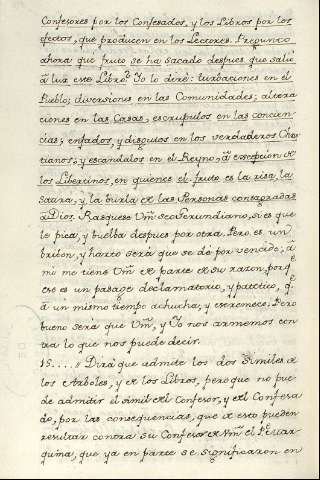 Confesores por los Confesados, y los Libros por los
efectos, que producen en los Lectores. Pregunto
ahora que fruto se ha sacado despues que salió
à luz este Libro? Yo lo diré: turbaciones en el
Pueblo; diversiones en las Comunidades; altera
ciones en las Casas, escrupulos en las concien-
cias; enfados, y disgustos en los verdaderos Chris
tianos; y escandalos en el Reyno, à excepcion de
los Libertinos, en quienes el fruto es la risa, la
satira, y la burla de las Personas consagradas
à Dios. Rasquese Vm̃ seo Ferundiano, si es que
le pica, y buelba despues por otra. Pero es un
briton, y harto será que se dé por vencido; à
mi me tiene Vm̃ de parte de su razon, porq.e
ese es un pasage declamatorio, y patetico, q.e
à un mismo tiempo achucha, y estremece; Pero
bueno será que Vm̃, y Yo nos armemos con
tra lo que nos puede decir.
15.... Dirá que admite los dos similes de
los Arboles, y de los Libros, pero que no pue
de admitir el simil del Confesor, y del Confesa
do, por las consequencias, que de esto pueden
resultar contra su Confesor de Vm̃ el P.e Mar
quina, que ya en parte se significaron en